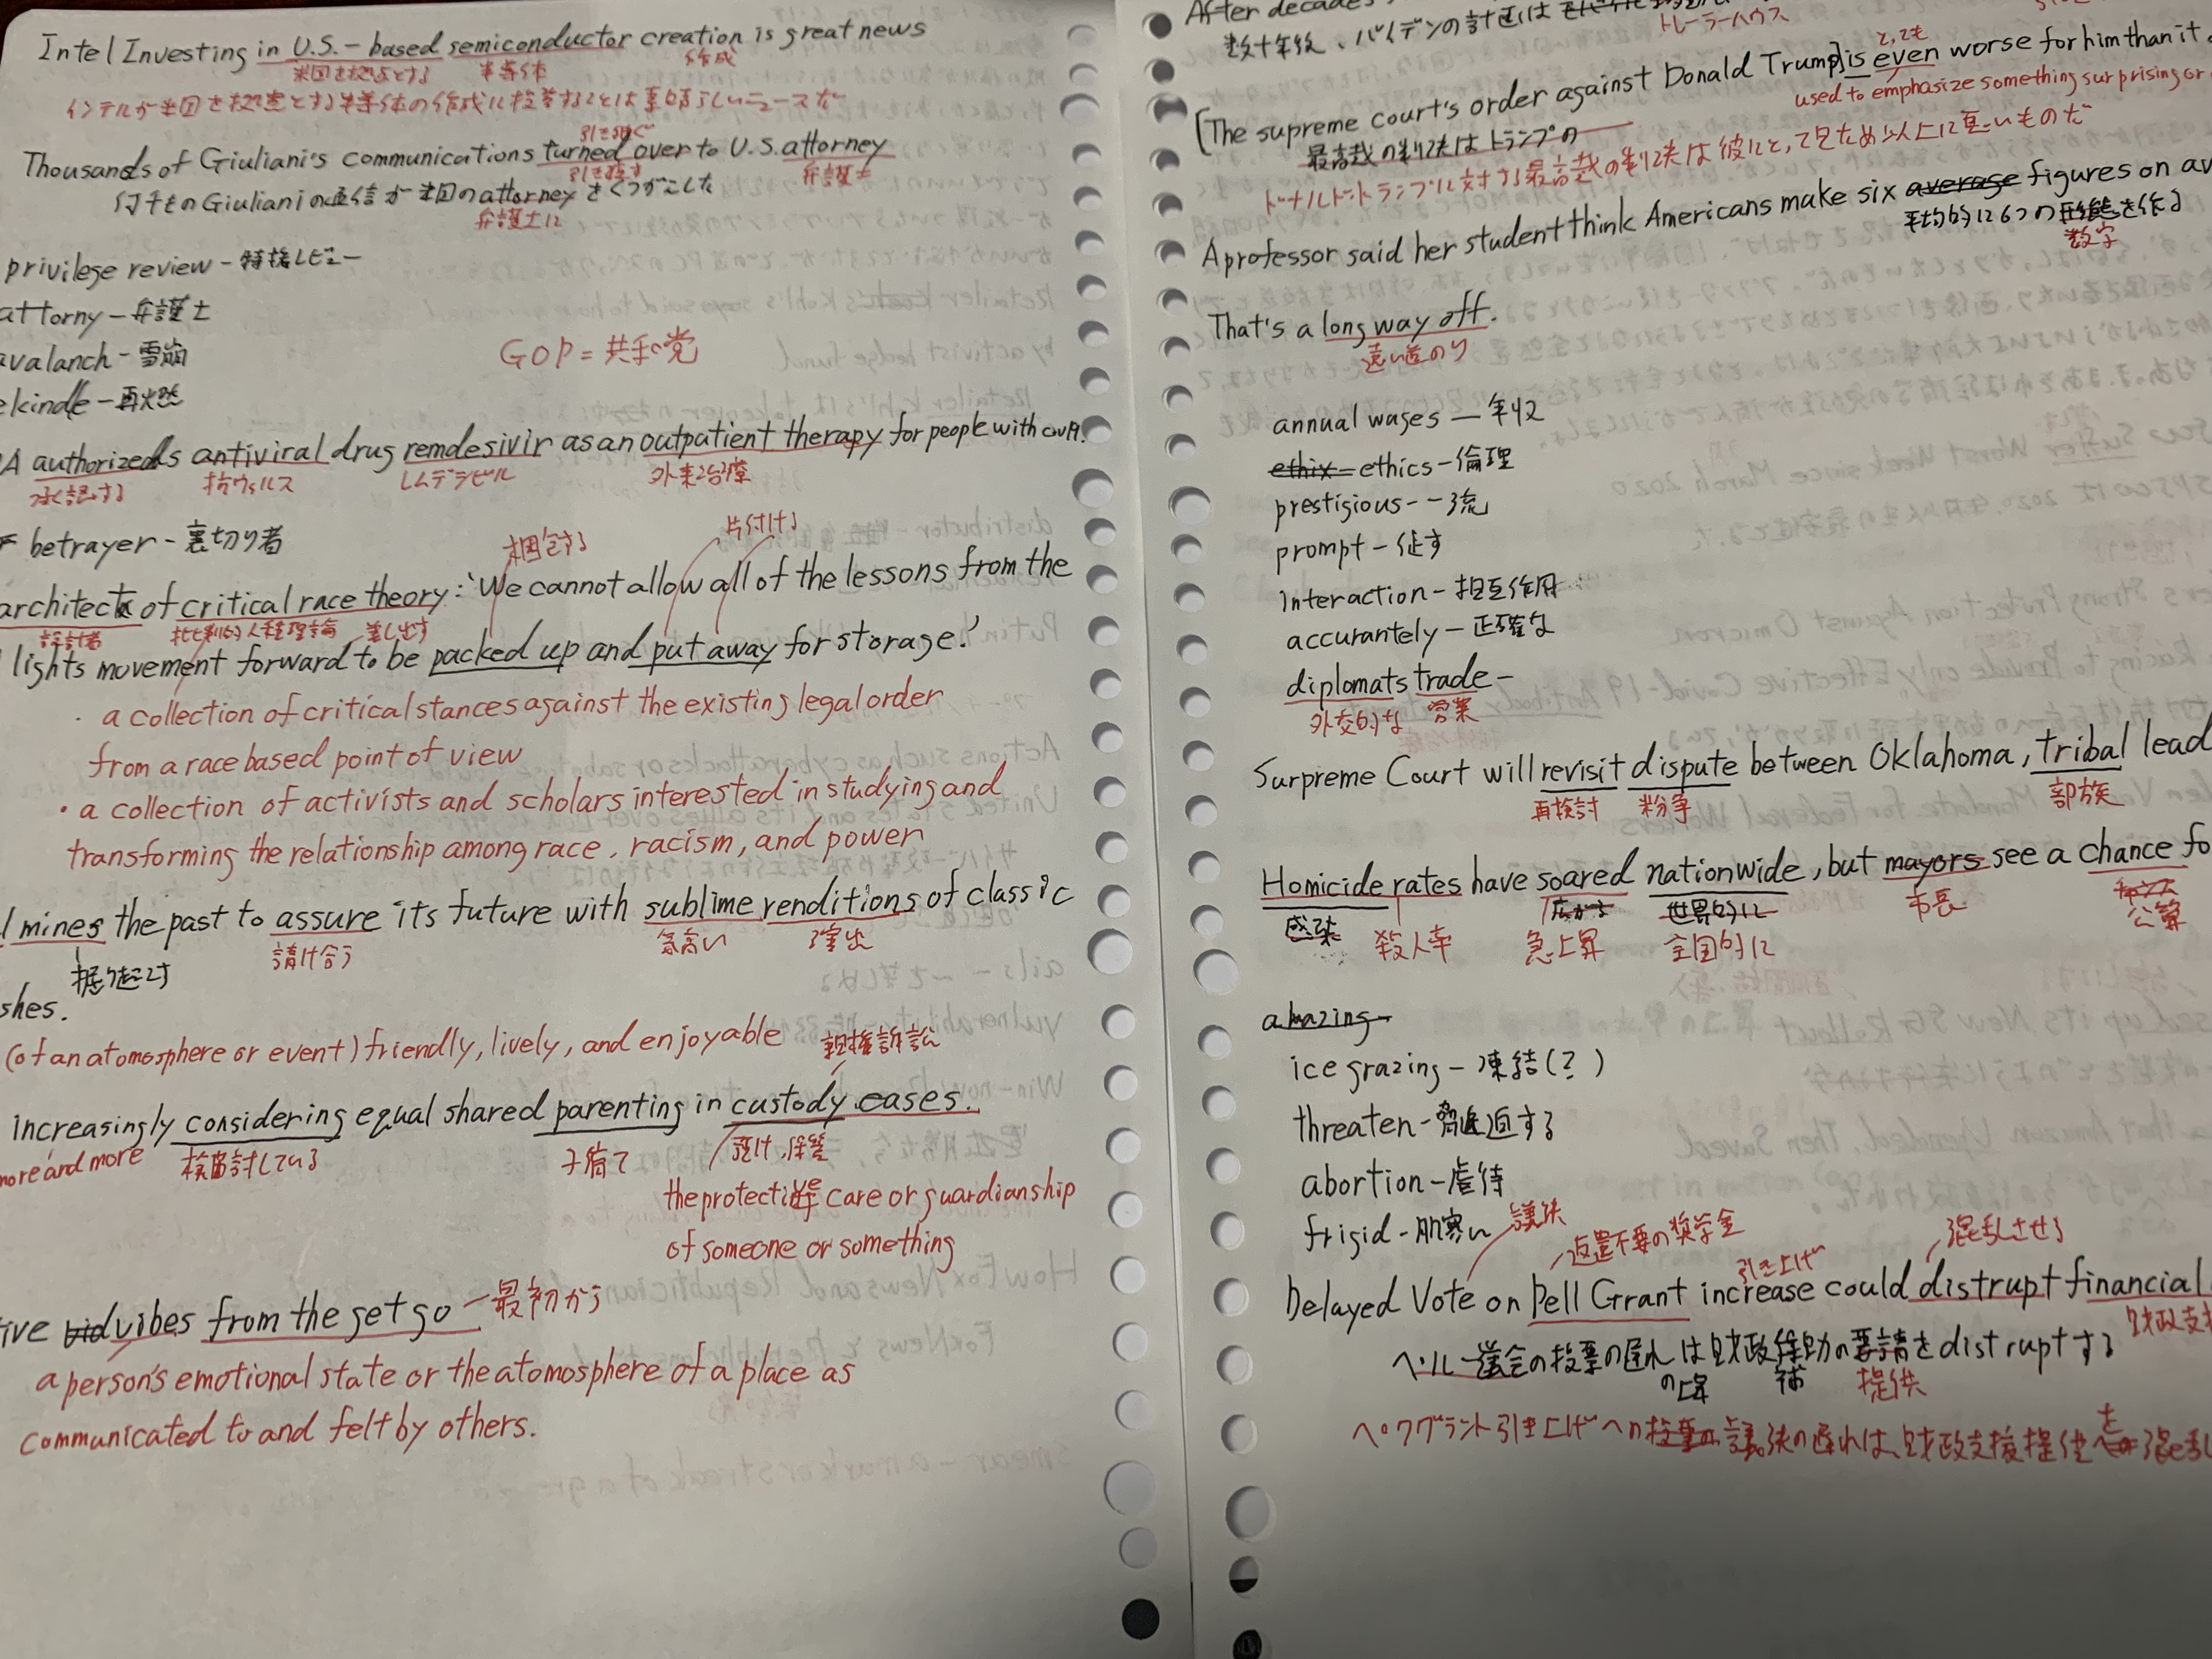 Intel Investing in U.S.-based semiconductor creation is great news
米国を拠点とする 半導体 作成
インテルが米国を拠点とする半導体の作成に投資することは素晴らしいニュースだ
引き継ぐ
Thousands of Giuliani's communications turned over to U.S. attorney
引き渡す 弁護士
何千ものGiulianiの通信が米国のattorneyをくつがえした
弁護士に
privilege review - 特権レビュー
attorny - 弁護士
avalanch - 雪崩
GOP = 共和党
ekindle - 再燃
A authorizeds antiviral drug remdesivir as an outpatient therapy for people with
承認する 抗ウィルス レムデシビル 外来治療
betrayer - 裏切り者
梱包する 片付ける
architect of critical race theory: 'We cannot allow all of the lessons from the
設計者 批判的人種理論 差し出す
lights movement forward to be packed up and put away for storage.'
・a collection of critical stances against the existing legal order
from a race based point of view
・a collection of activists and scholars interested in studying and
transforming the relationship among race, racism, and power
l mines the past to assure its future with sublime renditions of classic
掘り起こす 請け合う 気高い 演出
shes.
(of an atomosphere or event) friendly, lively, and enjoyable
親権訴訟
increasingly considering equal shared parenting in custody cases.
more and more 検討している 子育て 預け、保管
the protective care or guardianship
of someone or something
ive vibes from the get go - 最初から
a person's emotional state or the atomosphere of a place as
communicated to and felt by others.
After decades
数十年後、バイデンの計画は
トレーラーハウス
とても
[The supreme court's order against Donald Trump] is even worse for him than it
used to emphasize something surprising or
最高裁の判決はトランプの
ドナルドトランプに対する最高裁の判決は彼にとって見ため以上に悪いものだ
A professor said her student think Americans make six average figures on av
平均的に6つの形態を作る
数字
That's a long way off.
遠い道のり
annual wages - 年収
ethix = ethics - 倫理
prestigious - 一流
prompt - 促す
interaction - 相互作用
accurantely - 正確な
diplomats trade -
外交的な 営業
Surpreme Court will revisit dispute between Oklahoma, tribal lead
再検討 紛争 部族
Homicide rates have soared nationwide, but mayors see a chance fo
感染 殺人率 広がる 急上昇 世界的に 全国的に 市長 公算
amazing
ice grazing - 凍結(?)
threaten - 脅迫する
abortion - 虐待
frigid - 肌寒い
議決 返還不要の奨学金 引き上げ 混乱させる
Delayed Vote on Pell Grant increase could distrupt financial
財政支
ペル一議会の投票の遅れは財政援助の要請をdistruptする
の上昇 補 提供
ペルグラント引き上げへの投票の議決の遅れは、財政支援提供を混乱し